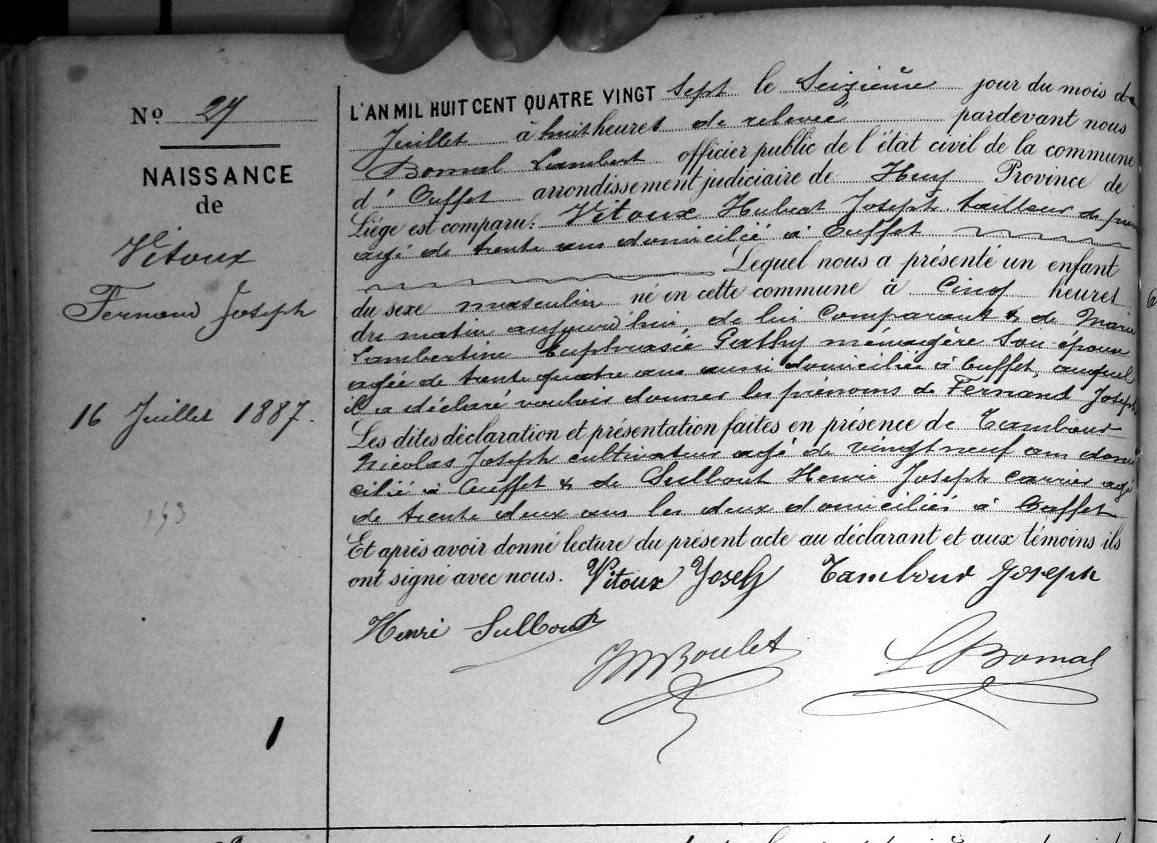 Nº 27
NAISSANCE
de
Vitoux
Fernand Joseph
16 Juillet 1887.
143
1
L'AN MIL HUIT CENT QUATRE VINGT sept le Seizième jour du mois de
Juillet à huit heures de relevée pardevant nous
Bomal Lambert officier public de l'état civil de la commune
d'Ouffet arrondissement judiciaire de Huy Province de
Liége est comparu: Vitoux Hubert Joseph tailleur de
agé de trente ans domicilié à Ouffet
Lequel nous a présenté un enfant
du sexe masculin né en cette commune à Cinq heures
du matin aujourd'hui, de lui Comparant & de Marie
Lambertine Euphrasie Gathy ménagère Son épouse
agée de trente quatre ans aussi domiciliée à Ouffet, auquel
il a déclaré vouloir donner les prénoms de Fernand Joseph
Les dites déclaration et présentation faites en présence de Tambour
Nicolas Joseph cultivateur agé de vingt neuf ans domi
cilié à Ouffet & de Sulbout Henri Joseph carrier agé
de trente deux ans les deux domiciliés à Ouffet
Et après avoir donné lecture du présent acte au déclarant et aux témoins ils
ont signé avec nous. Vitoux Joseph Tambour Joseph
Henri Sulbout
Boulet L Bomal